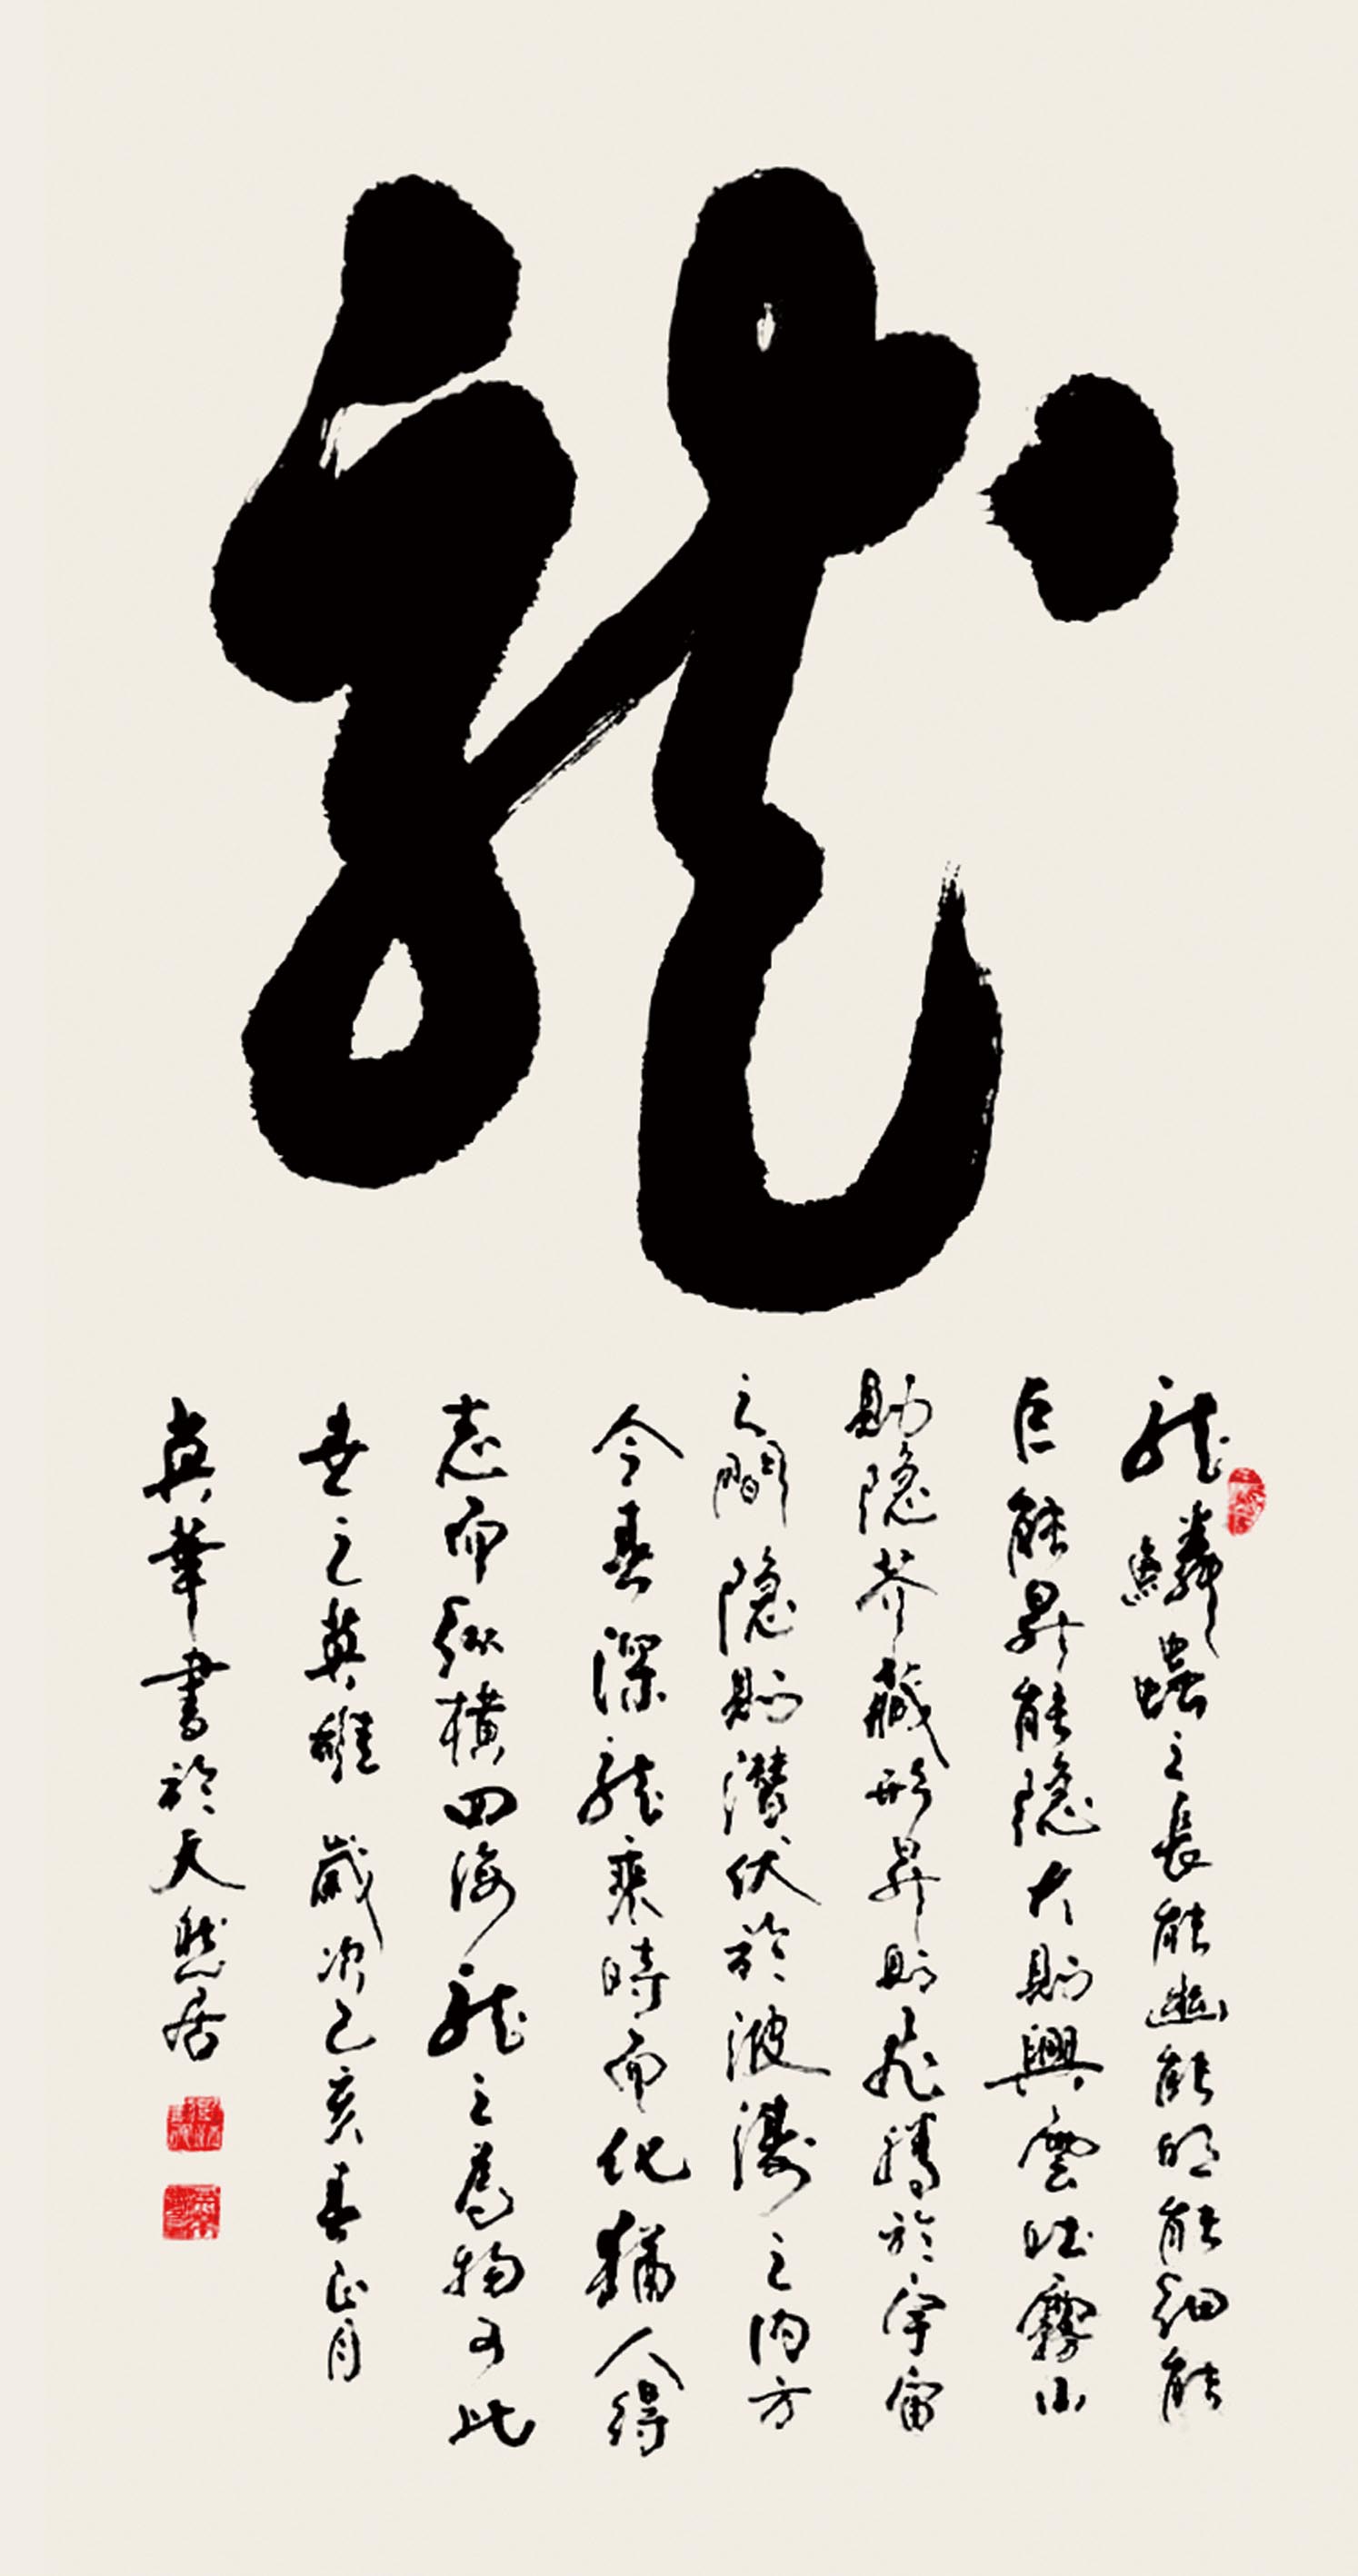 龍
龍鱗蟲之長能幽能明能細能
巨能昇能隐大則興雲吐霧小
則隐芥藏形昇則飛騰於宇宙
之間隐則潜伏於波濤之内方
今春深龍乘時而化猶人得
志而縱橫四海龍之為物可比
世之英雄 歲次己亥春正月
華書於天然居